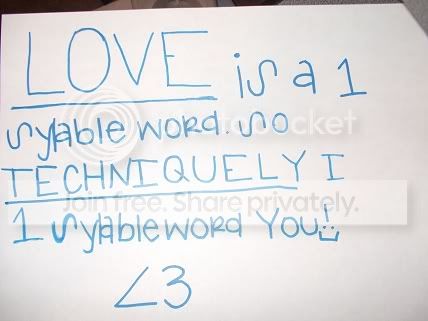 LOVE is a 1
sylable word. so
TECHNIQUELY I
1 sylable word YOU!
<3
photobucket
Join free. Share privately.